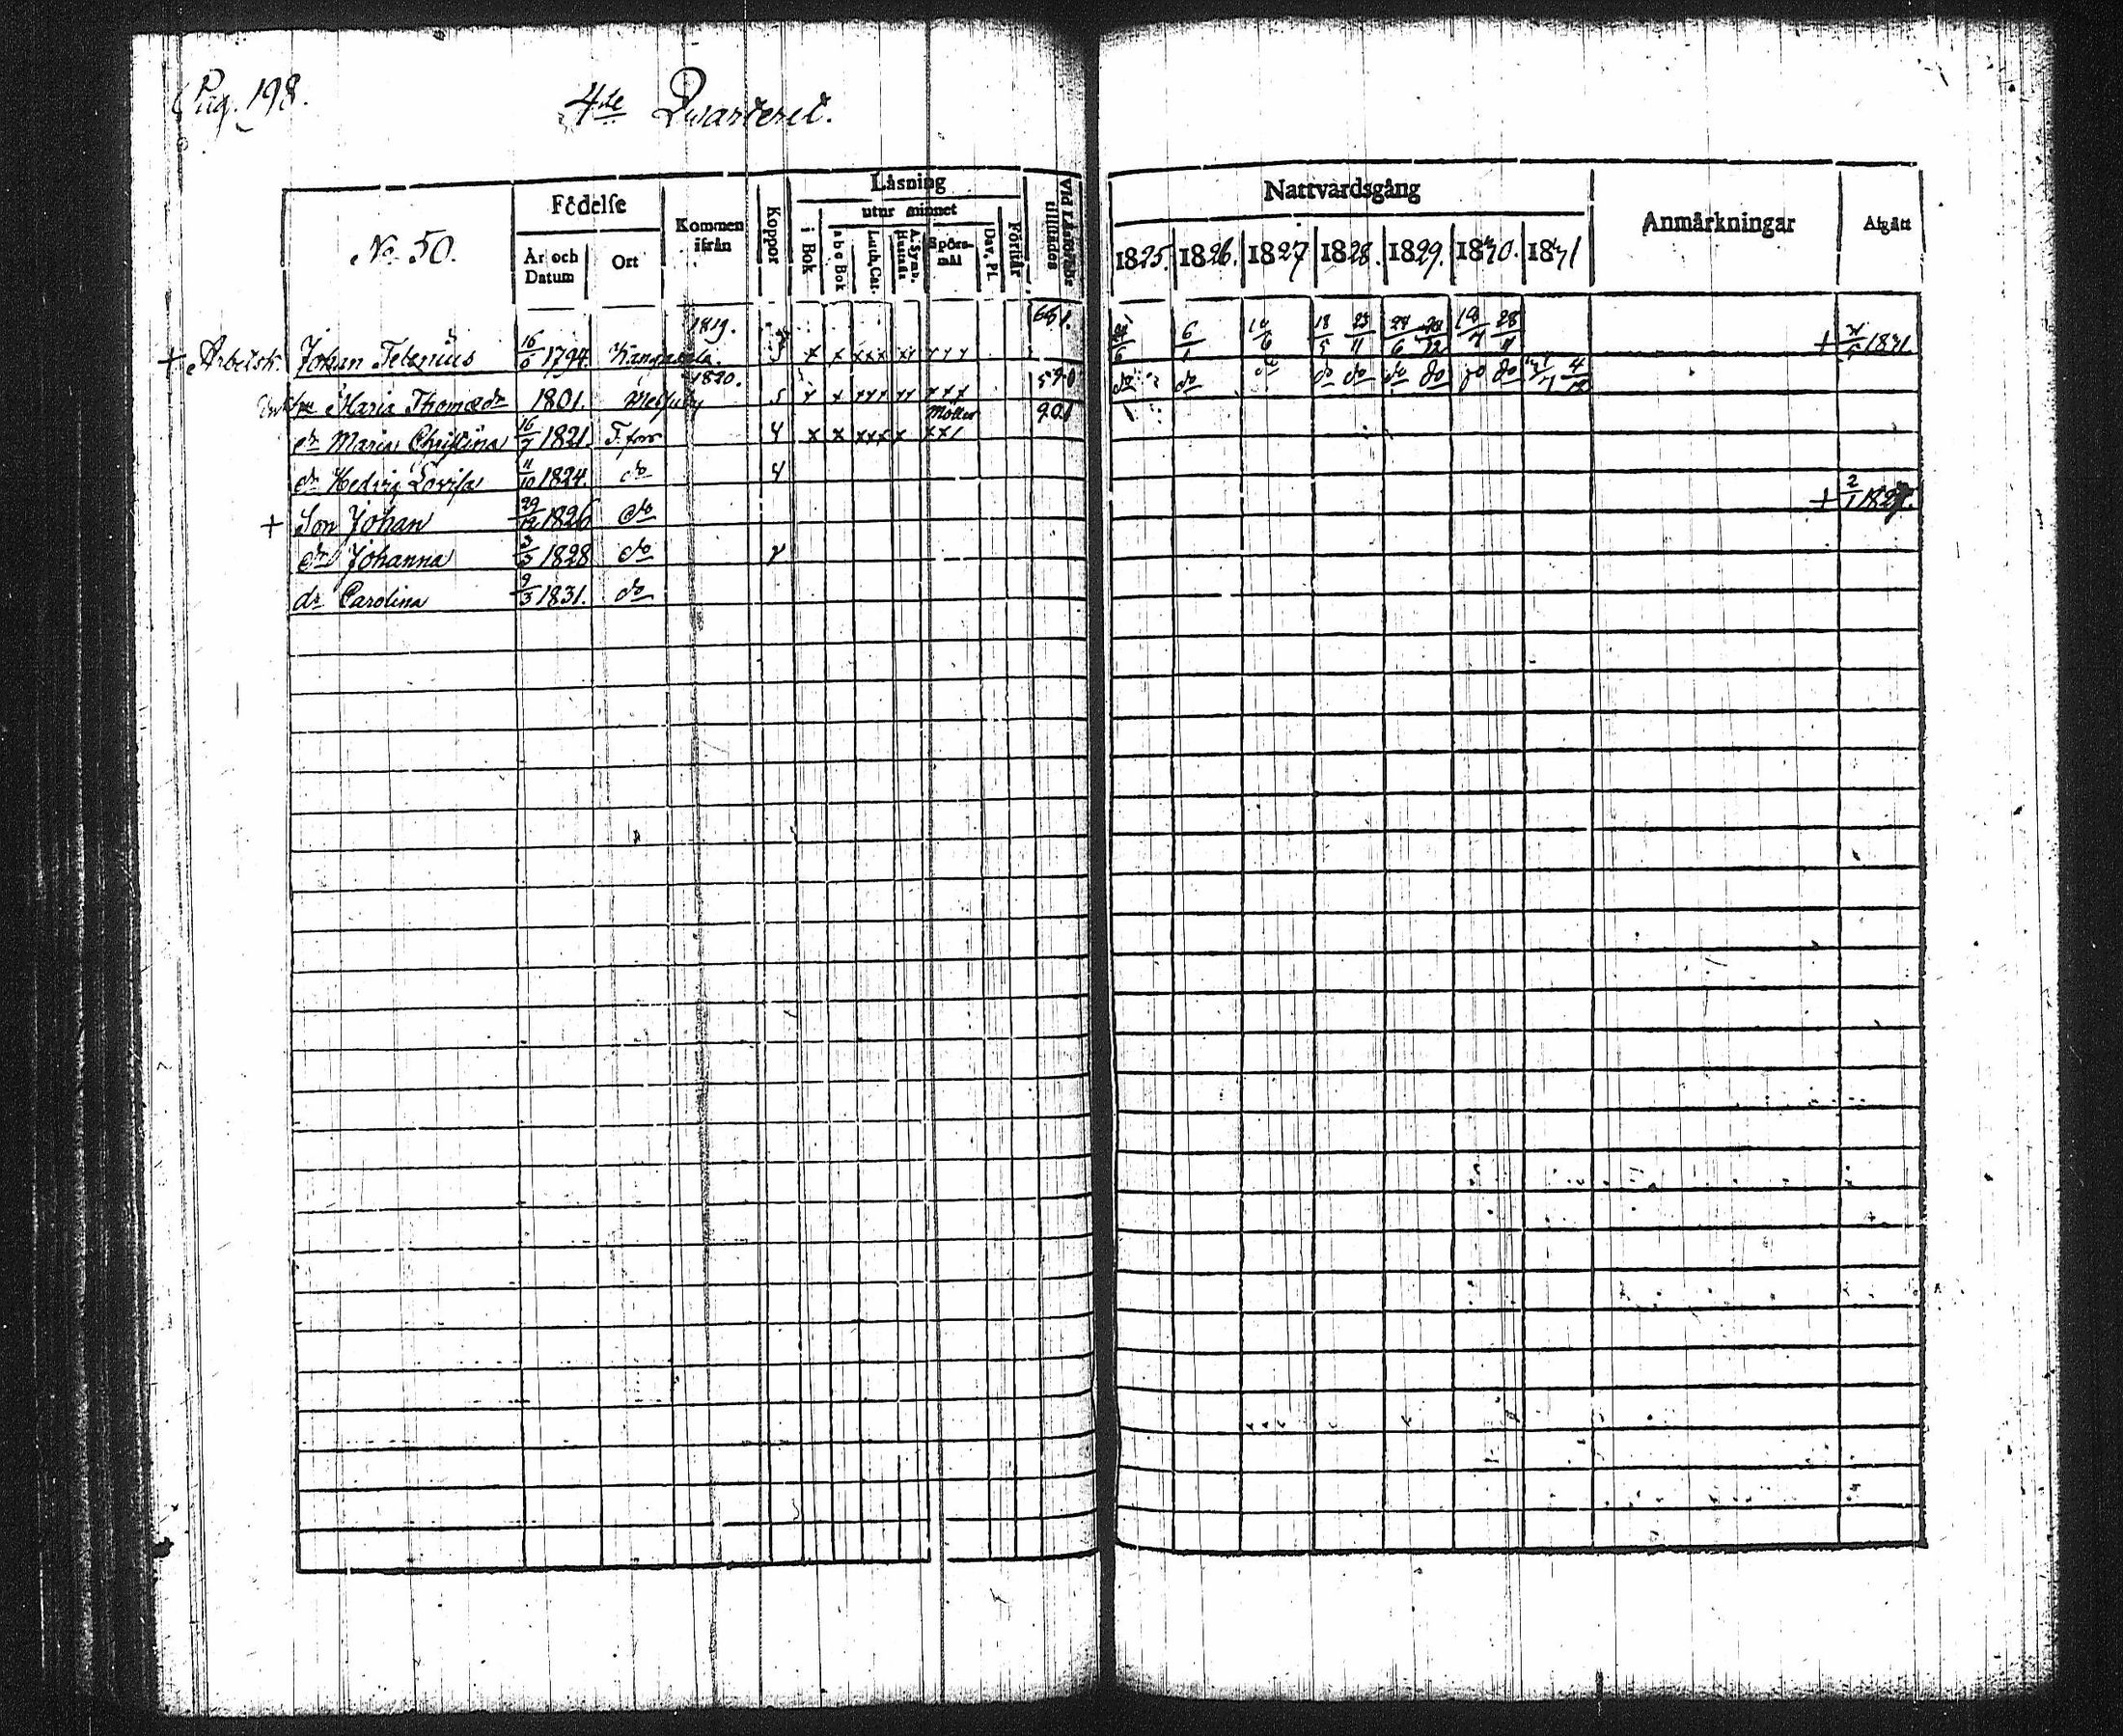 Pag. 198.
4de Qvarteret.
No 50.
Födelse
År och Datum
Ort
Kommen ifrån
Koppor
Läsning
i Bok
utur minnet
a b c Bok
Luth. Cat.
A. Symb. Hustafl.
Spörsmål
Dav. Pl.
Förstår
Vid Läsförhör tillstädes
Nattvardsgång
1825. 1826. 1827 1828. 1829. 1830. 1831
Anmärkningar
Afgått
+ Arbetsk. Johan 16/9 1794. Kangasala. 1819. 5 x x xxx xx xxx 651. 6/1 10/6 18/5 23/11 28/6 19/4 28/11 + 1831.
Maria Thomædr 1801. Messuby 1820. 5 x x xxx xx xxx 590 do do do do do do do do do 4/12
dr Maria Christina 16/7 1821. T.fors 4 x x xxx x xx/ 901
dr Hedvig Lovisa 11/10 1824. do 4
+ Son Johan 29/12 1826 do + 2/1 1827.
dr Johanna 3/5 1828 do
dr Carolina 9/3 1831. do